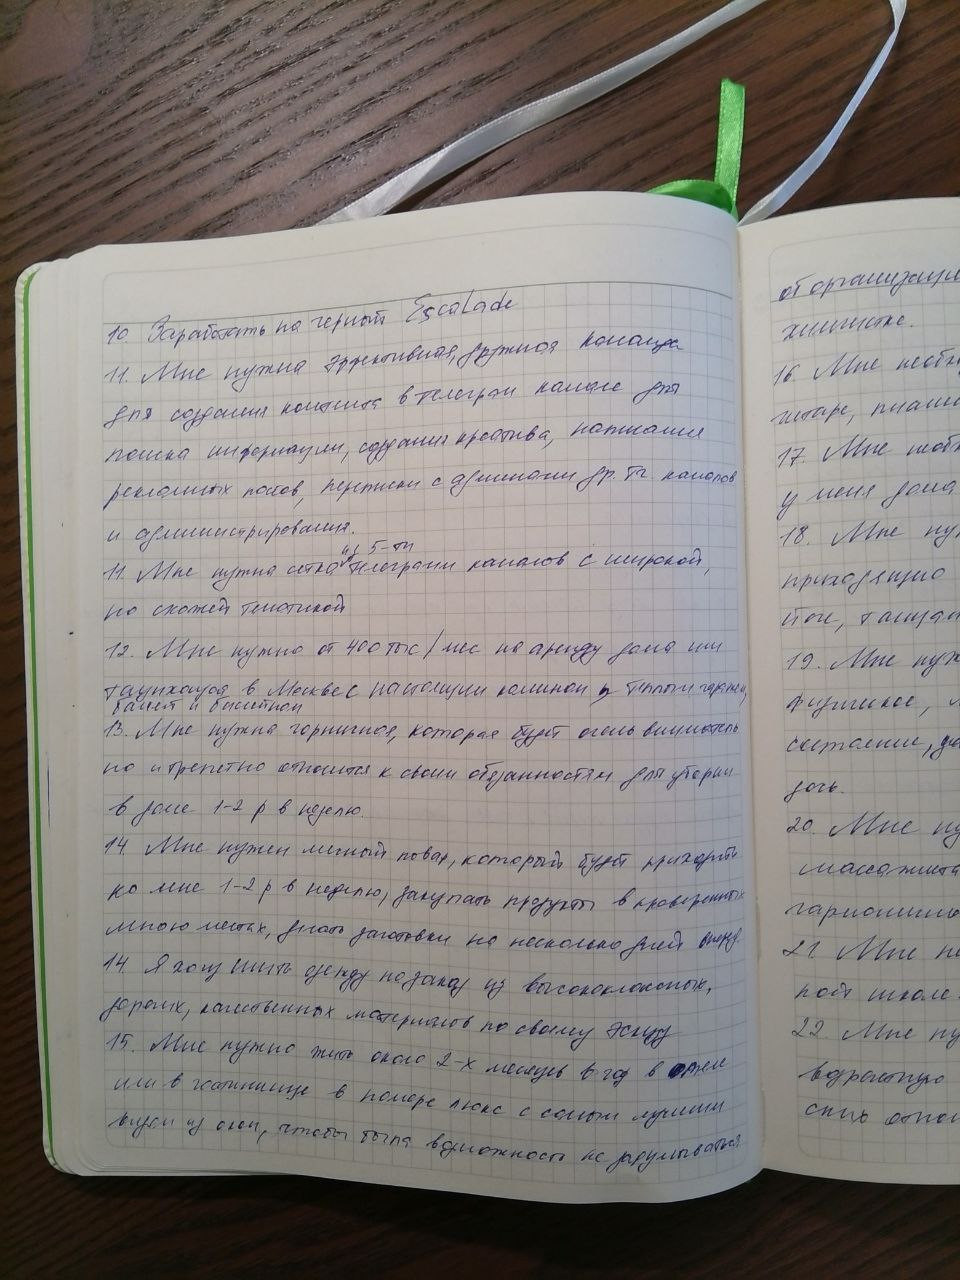 10. Заработать на черный Escalade
11. Мне нужна эффективная, дружная команда
для создания контента в телеграм канале для
поиска информации, создания креатива, написания
рекламных постов, переписки с админами др. тг. каналов
и администрирования.
11. Мне нужна сетка из 5-ти телеграм каналов с широкой,
но схожей тематикой
12. Мне нужно от 400 тыс/мес на аренду дома или
таунхауса в Москве с настоящим камином, теплым гаражом,
баней и бассейном
13. Мне нужна горничная, которая будет очень вниматель
но и трепетно относится к своим обязанностям для уборки
в доме 1-2 р в неделю.
14. Мне нужен личный повар, который будет приходить
ко мне 1-2 р в неделю, закупать продукты в проверенных
мною местах, делать заготовки на несколько дней вперед.
14. Я хочу шить одежду на заказ из высококлассных,
дорогих, качественных материалов по своему эскизу
15. Мне нужно жить около 2-х месяцев в год в отеле
или в гостинице в номере люкс с самым лучшим
видом из окон, чтобы была возможность не задумываться
от организации
химчистке.
16. Мне необх
гитаре, пиани
17. Мне необх
у меня дома
18. Мне нуж
приходящие
йоге, танцам
19. Мне нуж
физическое,
состояние,
дочь.
20. Мне ну
массажиста
гармонично
21. Мне не
22. Мне ну
возрастную